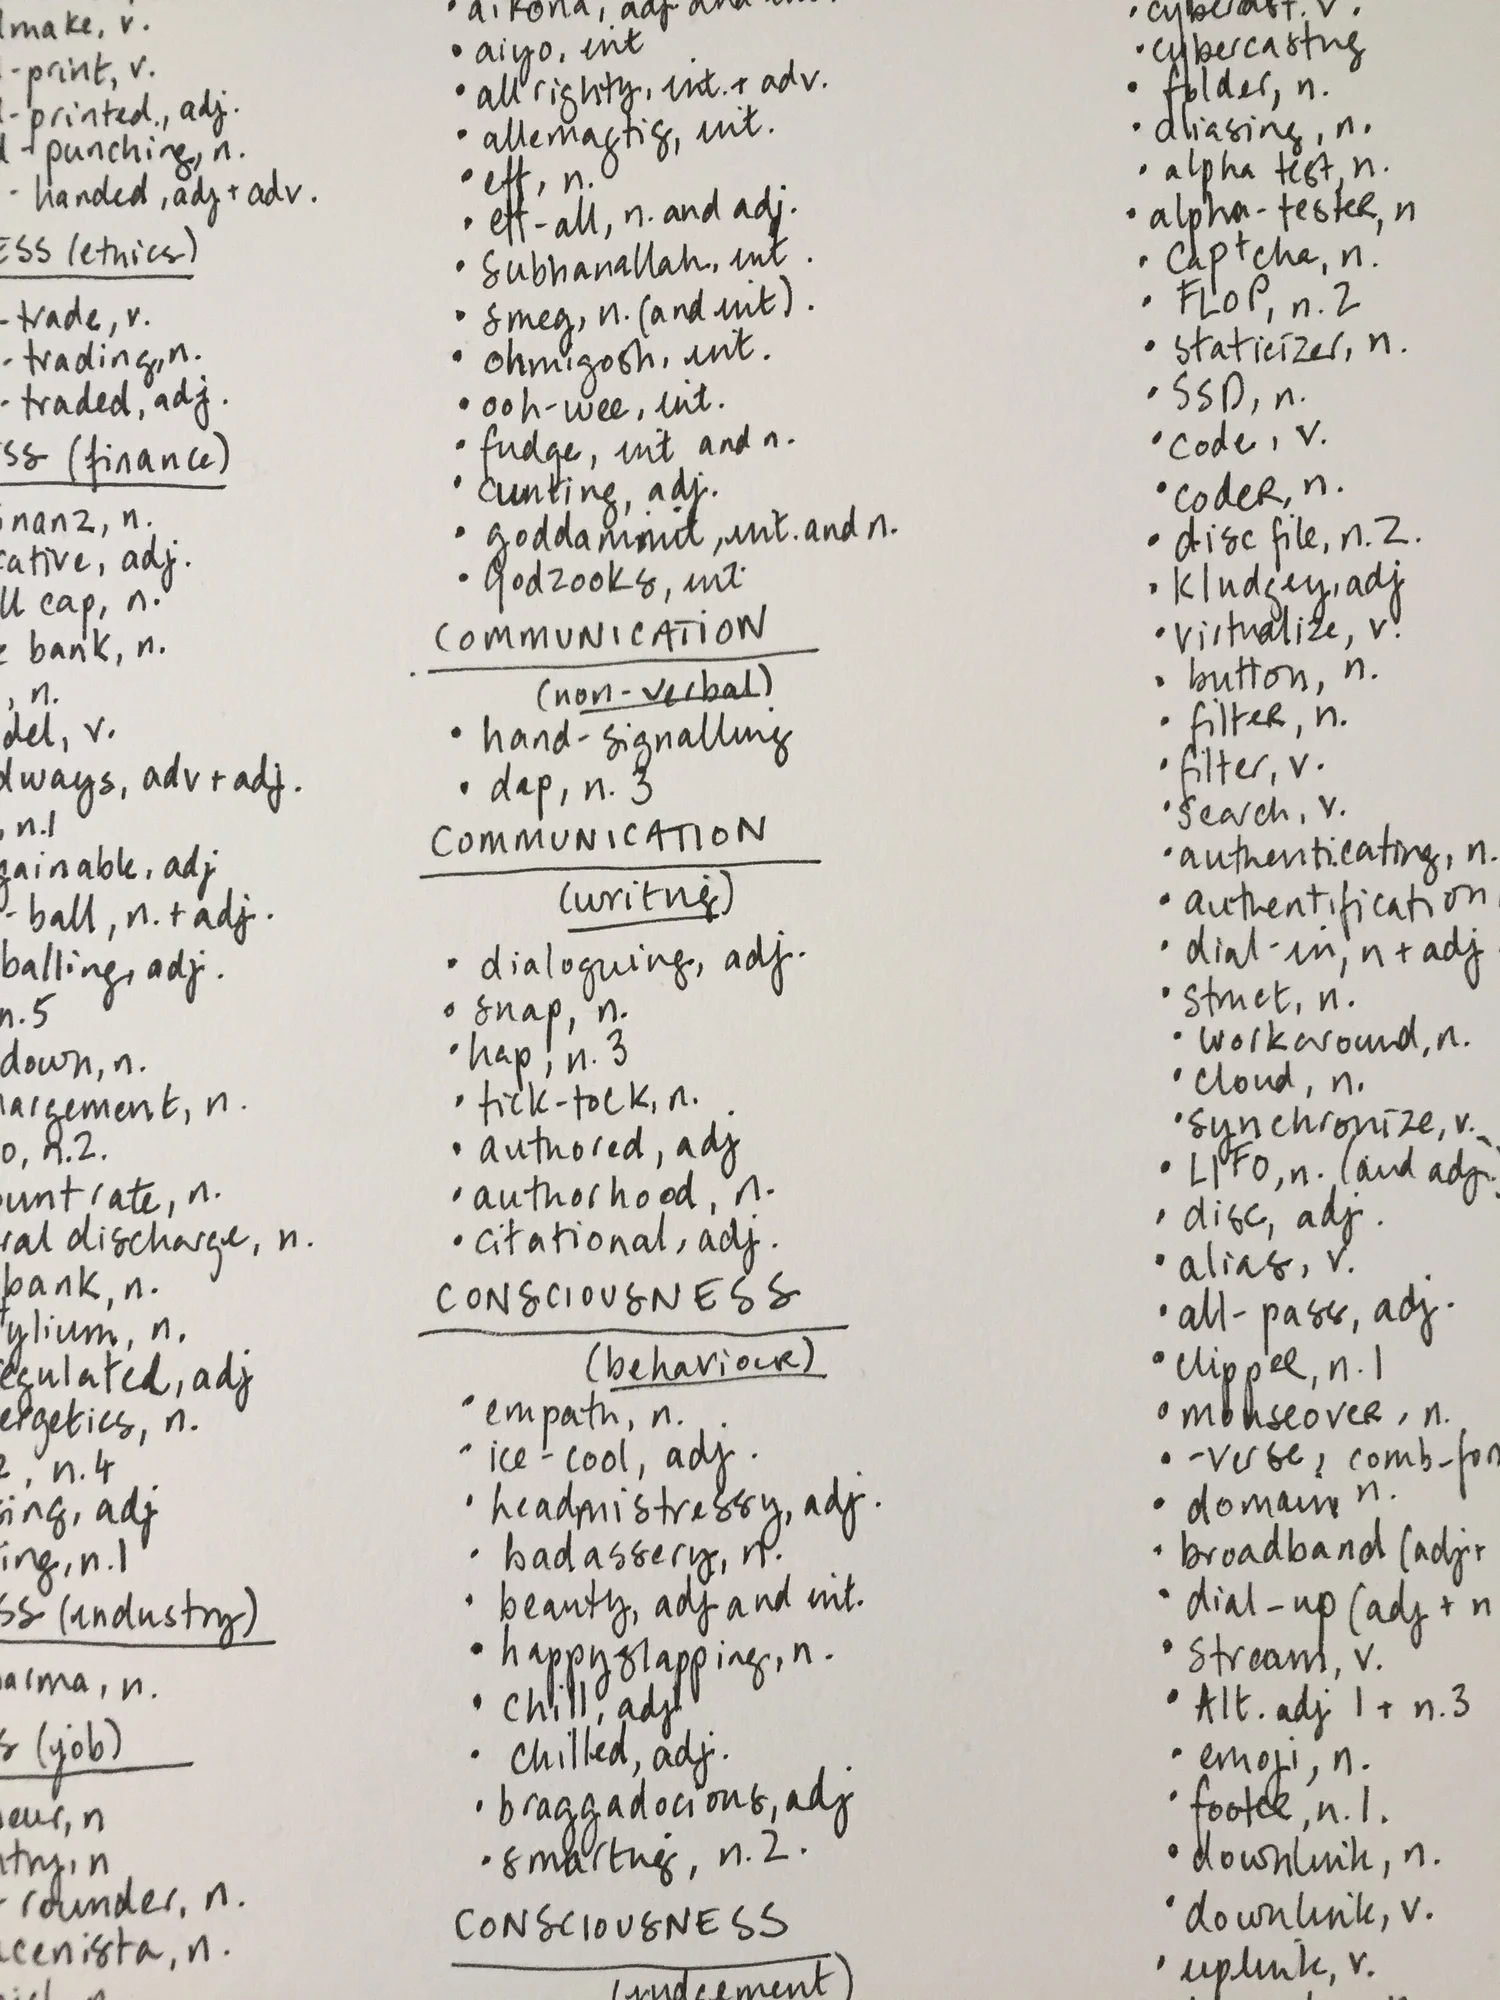 make, v.
-print, v.
-printed., adj.
-punching, n.
- handed, adj + adv.
ESS (ethics)
-trade, v.
-trading, n.
-traded, adj.
SS (finance)
inanz, n.
cative, adj.
ll cap, n.
bank, n.
, n.
del, v.
dways, adv + adj.
, n.1
gainable, adj
-ball, n. + adj.
balling, adj.
n.5
down, n.
hargement, n.
o, n.2.
ount rate, n.
ral discharge, n.
bank, n.
ylium, n.
egulated, adj
ergetics, n.
, n.4
sing, adj
ing, n.1
SS (industry)
harma, n.
s (job)
eur, n
ntry, n
rounder, n.
cenista, n.
• aikona, adj and int.
• aiyo, int
• all righty, int. + adv.
• allemagtig, int.
• eff, n.
• eff-all, n. and adj.
• Subhanallah, int.
• smeg, n. (and int).
• ohmigosh, int.
• ooh-wee, int.
• fudge, int and n.
• cunting, adj.
• goddammit, int. and n.
• godzooks, int
COMMUNICATION
(non-verbal)
• hand-signalling
• dap, n. 3
COMMUNICATION
(writing)
• dialoguing, adj.
• snap, n.
• hap, n. 3
• tick-tock, n.
• authored, adj
• authorhood, n.
• citational, adj.
CONSCIOUSNESS
(behaviour)
• empath, n.
• ice-cool, adj.
• headmistressy, adj.
• badassery, n.
• beauty, adj and int.
• happy slapping, n.
• chill, adj
• chilled, adj.
• braggadocious, adj
• smarting, n.2.
CONSCIOUSNESS
(judgement)
• cybercast, v.
• cybercasting
• folder, n.
• aliasing, n.
• alpha test, n.
• alpha-tester, n
• Captcha, n.
• FLOP, n.2
• staticizer, n.
• SSD, n.
• code, v.
• coder, n.
• disc file, n.2.
• kludgey, adj
• virtualize, v.
• button, n.
• filter, n.
• filter, v.
• search, v.
• authenticating, n.
• authentification
• dial-in, n + adj
• struct, n.
• workaround, n.
• cloud, n.
• synchronize, v.
• LIFO, n. (and adj.)
• disc, adj.
• alias, v.
• all-pass, adj.
• clipper, n.1
• mouseover, n.
• -verse, comb-for
• domain n.
• broadband (adj +
• dial-up (adj + n
• stream, v.
• Alt. adj 1 + n.3
• emoji, n.
• footer, n.1.
• downlink, n.
• downlink, v.
• uplink, v.